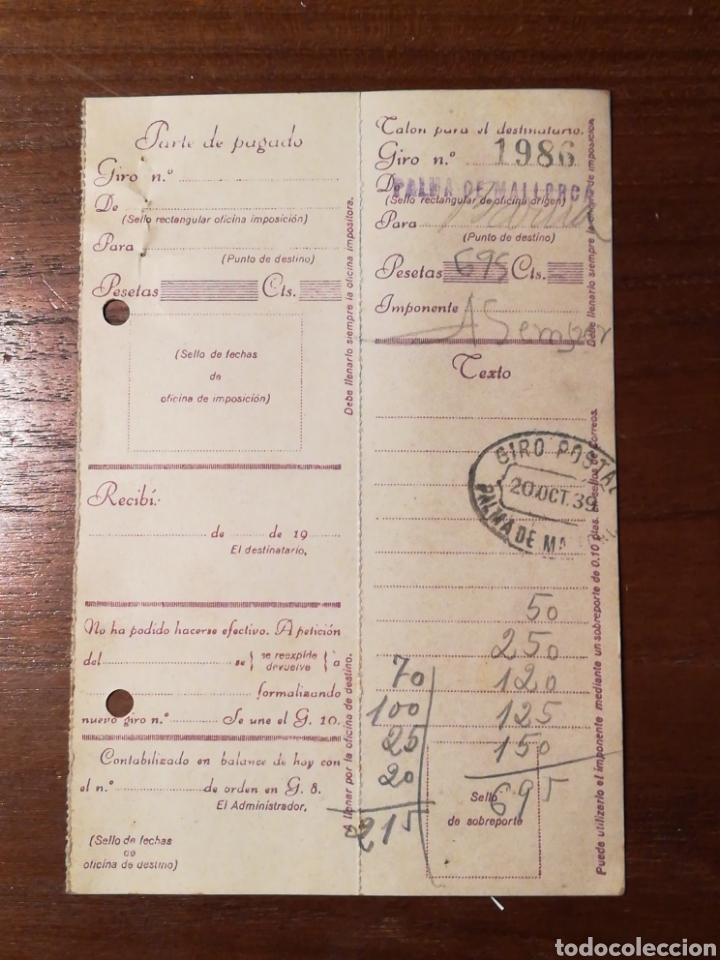 Parte de pagado
Giro n.º
De
(Sello rectangular oficina imposición)
Para
(Punto de destino)
Pesetas Cts.
(Sello de fechas
de
oficina de imposición)
Recibí:
de de 19
El destinatario,
No ha podido hacerse efectivo. A petición
del se { se reexpide devuelve } a
formalizando
nuevo giro n.º Se une el G. 10.
Contabilizado en balance de hoy con
el n.º de orden en G. 8.
El Administrador,
(Sello de fechas
de
oficina de destino)
Debe llenarlo siempre la oficina impositora.
A llenar por la oficina de destino.
Talon para el destinatario.
Giro n.º 1986
De PALMA DE MALLORCA
(Sello rectangular de oficina origen)
Para
(Punto de destino)
Pesetas 695 Cts.
Imponente A Semper
Texto
GIRO POSTAL
20.OCT.39
PALMA DE MA
50
250
120
125
150
695
70
100
25
20
215
Sello
de sobreporte
Debe llenarlo siempre la oficina de imposición
Puede utilizarlo el imponente mediante un sobreporte de 0,10 ptas. en sellos de Correos.
todocoleccion